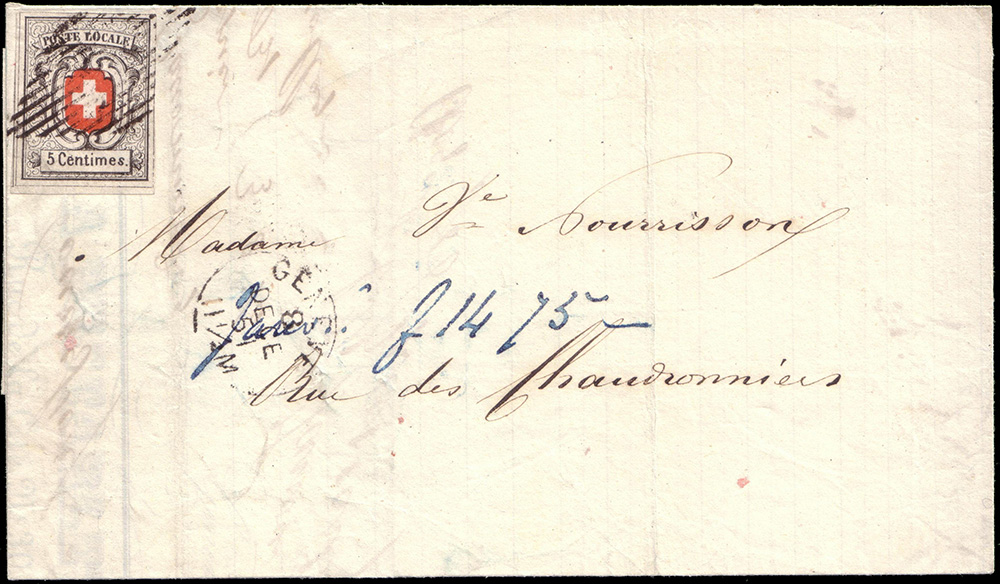 POSTE LOCALE
5 Centimes.
Madame Ve Nourrisson
GENEVE
8
DECE
51
11½M
f 14 75
Rue des Chaudronniers